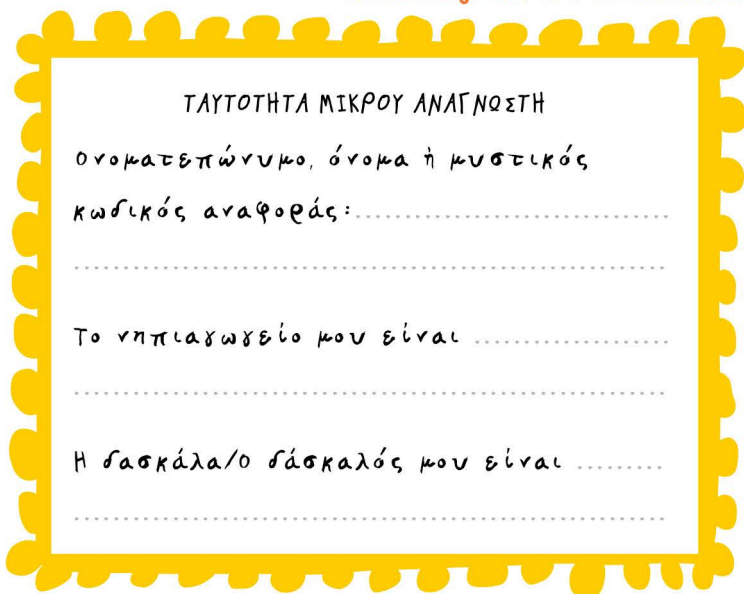 ΤΑΥΤΟΤΗΤΑ ΜΙΚΡΟΥ ΑΝΑΓΝΩΣΤΗ
Ονοματεπώνυμο, όνομα ή μυστικός
κωδικός αναφοράς:..........................................
................................................................................
Το νηπιαγωγείο μου είναι ..........................
................................................................................
Η δασκάλα/Ο δάσκαλός μου είναι ............
................................................................................